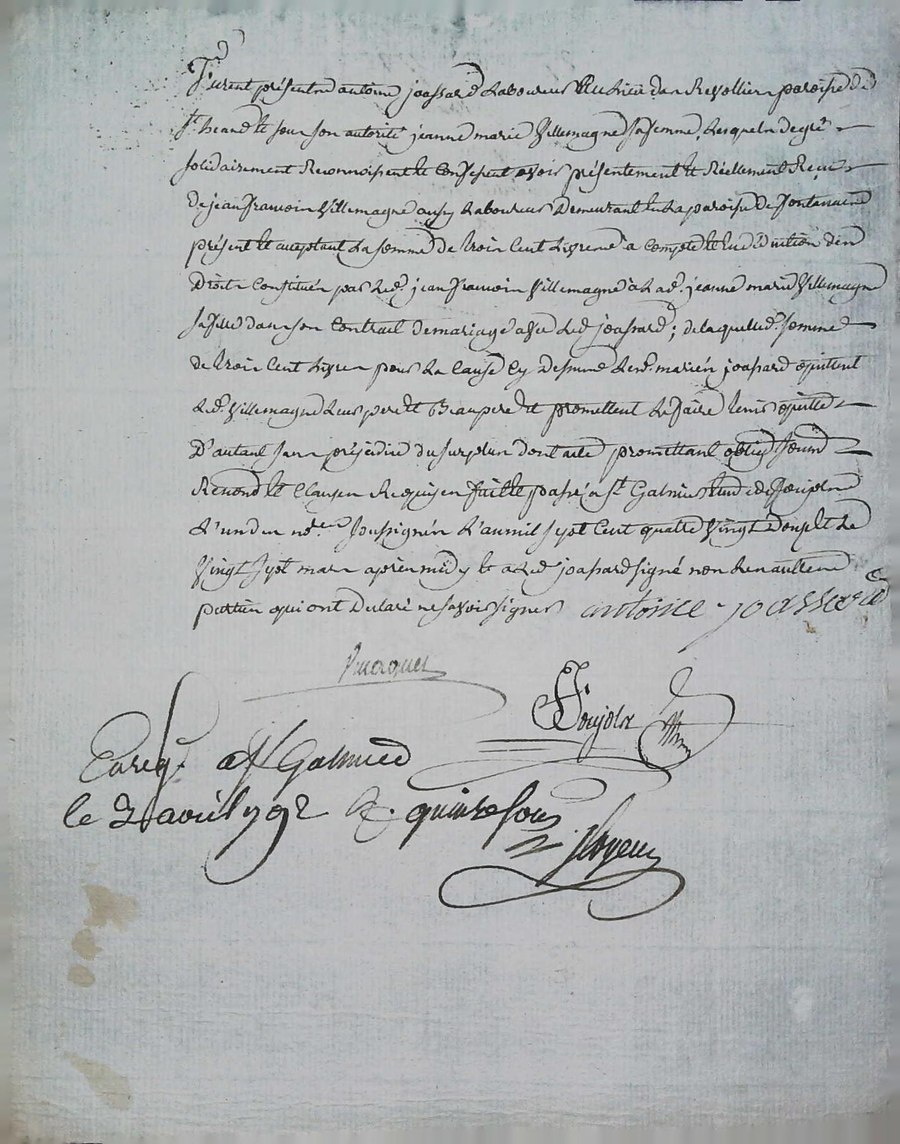 Furent présents antoine joassard Laboureur du Lieu dan Revollier paroisse de
St. heand et sous son autorité jeanne marie Villemagne sa femme, Lesquels de gré
solidairement Reconnoissent et Confessent avoir présentement et Réellement Reçu
de jean francois Villemagne aussy Laboureur Demeurant en La paroisse de fontanaine
présent et acceptant La somme de trois Cent Livres a compte et en déduction des
Droits Constitués par Led. jean francois Villemagne a Lad. jeanne marie Villemagne
sa fille dans son Contrat de mariage avec Led joassard; de laquelle somme
de trois Cent Livres pour La Cause Cy dessus Lesd. mariés joassard quittent
Led. Villemagne Leur pere et Beaupere et promettent Le faire tenir quitte
D'autant sans préjudice du surplus dont acte promettant oblig
Renond et Clauses Requises fait et passé a St. Galmier Etude de Poujols
L'un des nores. soussignés L'an mil sept Cent quatre Vingt douze et Le
Vingt sept mars apres midy et a Led joassard signé non Les autres
parties qui ont déclaré ne savoir signer antoine joassard
Poujols
Enreg. a St Galmier
le 3 avril 1792 R. quinze sous